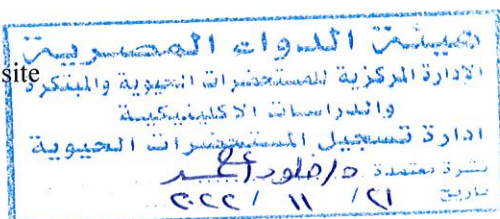 هيئة الدواء المصرية
site
الإدارة المركزية للمستحضرات الحيوية والمبتكرة
والدراسات الاكلينيكية
ادارة تسجيل المستحضرات الحيوية
نشرة معتمدة د/خلود أحمد
تاريخ ٢١ / ١١ / ٢٠٢٢